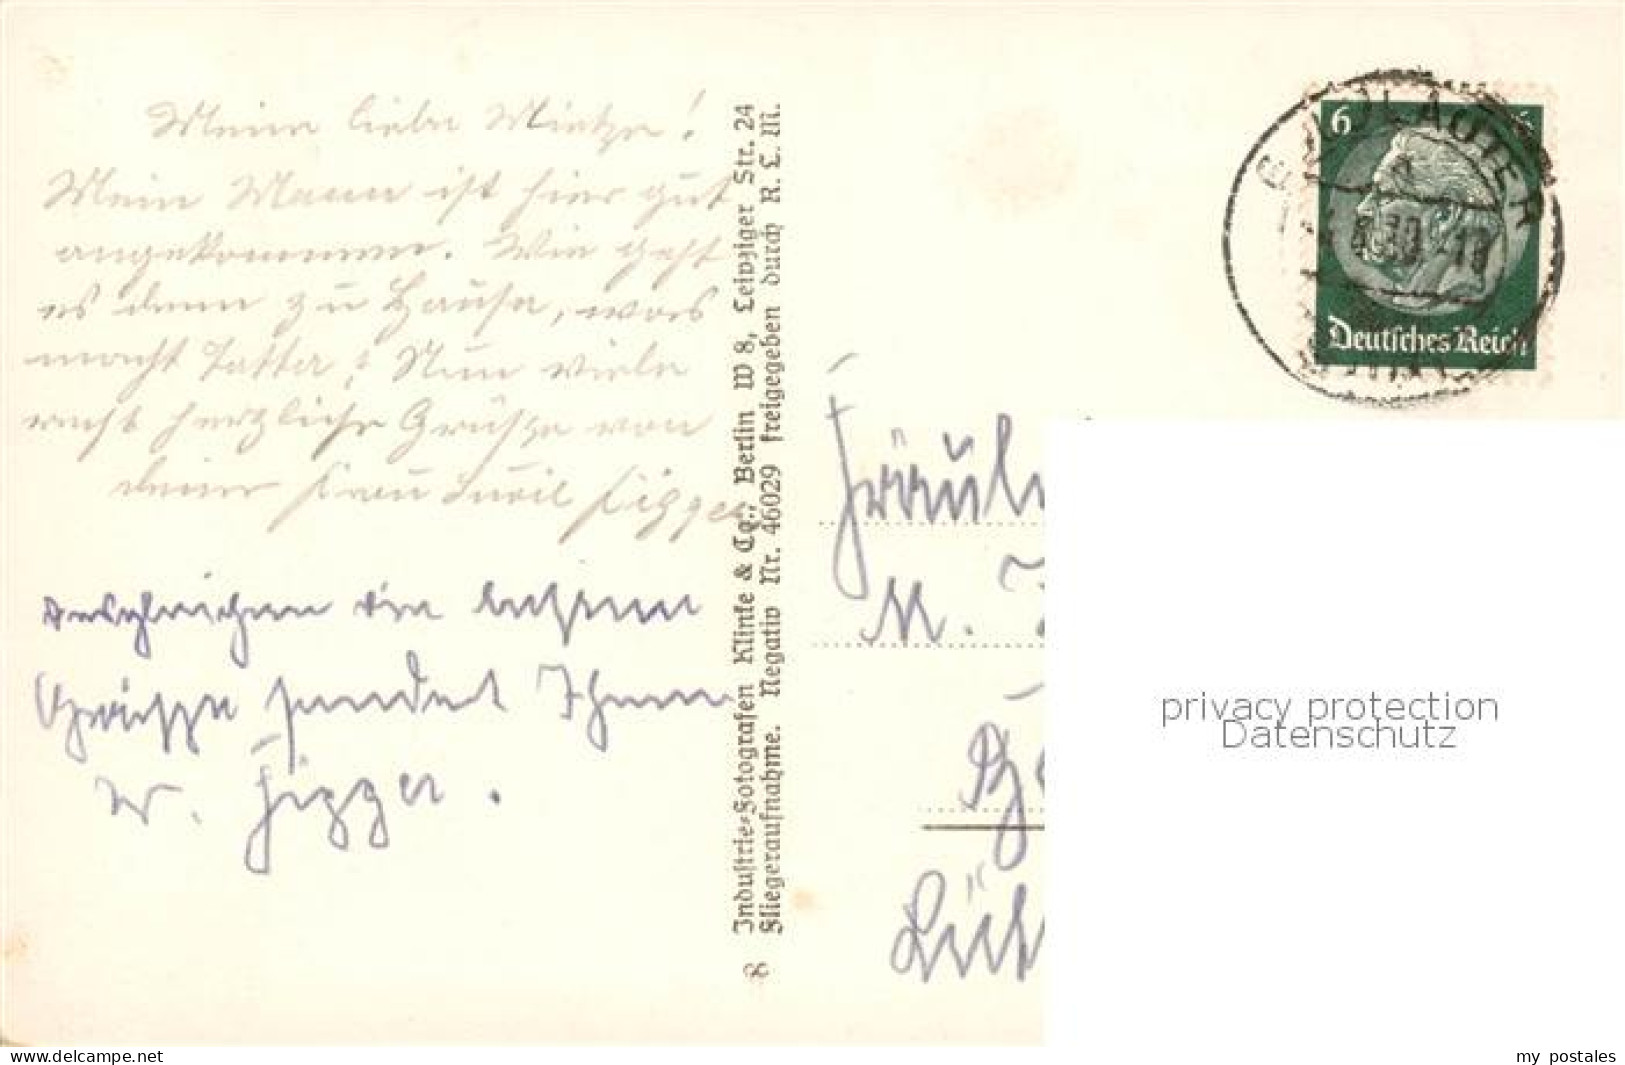 Meine liebe Mietze!
Mein Mann ist hier gut
angekommen. Wie geht
es denn zu Hause, was
macht Tatta? Nun viele
recht herzliche Grüße von
deiner Frau Figger
desgleichen die besten
Grüsse sendet Ihnen
W. Figger.
Industrie-Fotografen Klinke & Co., Berlin W 8, Leipziger Str. 24
Fliegeraufnahme. Negativ Nr. 46029 freigegeben durch R.L.M.
6
Deutsches Reich
Fräul
M.
Lüb
privacy protection
Datenschutz
www.delcampe.net
my postales